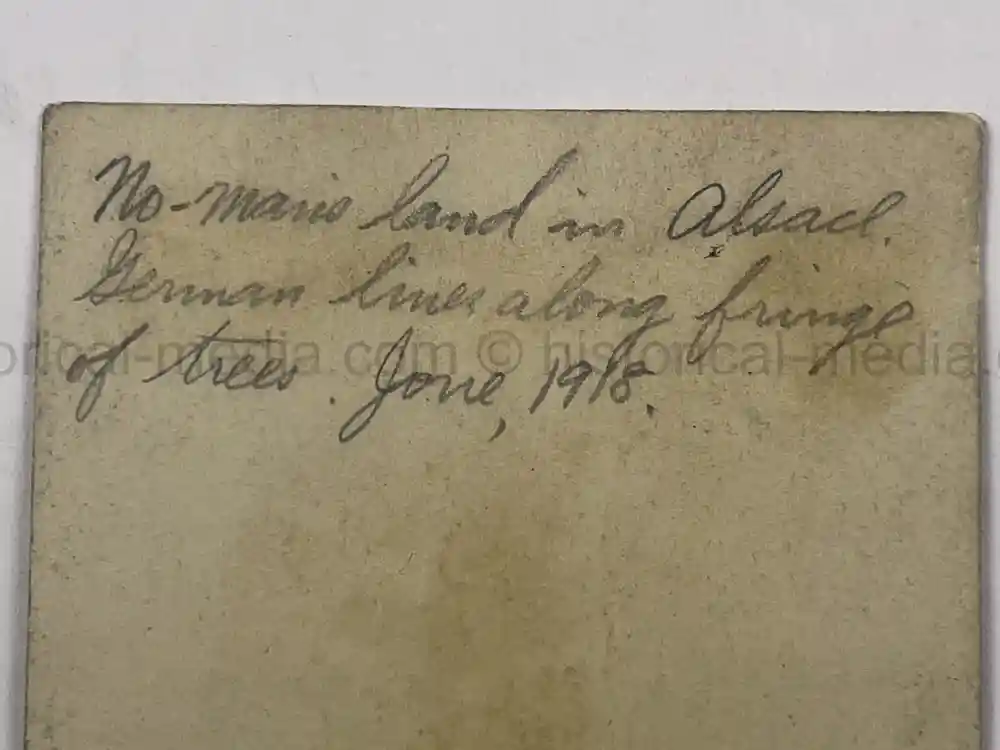 No-man's land in Alsace.
German lines along fringe
of trees. June, 1918.
historical-media.com © historical-media.com